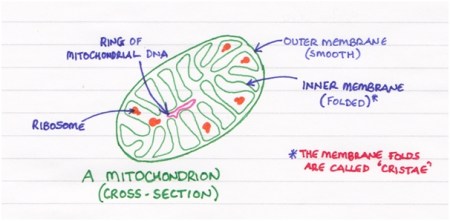 RING OF
MITOCHONDRIAL DNA
OUTER MEMBRANE
(SMOOTH)
INNER MEMBRANE
(FOLDED)*
RIBOSOME
A MITOCHONDRION
(CROSS-SECTION)
*THE MEMBRANE FOLDS
ARE CALLED 'CRISTAE'